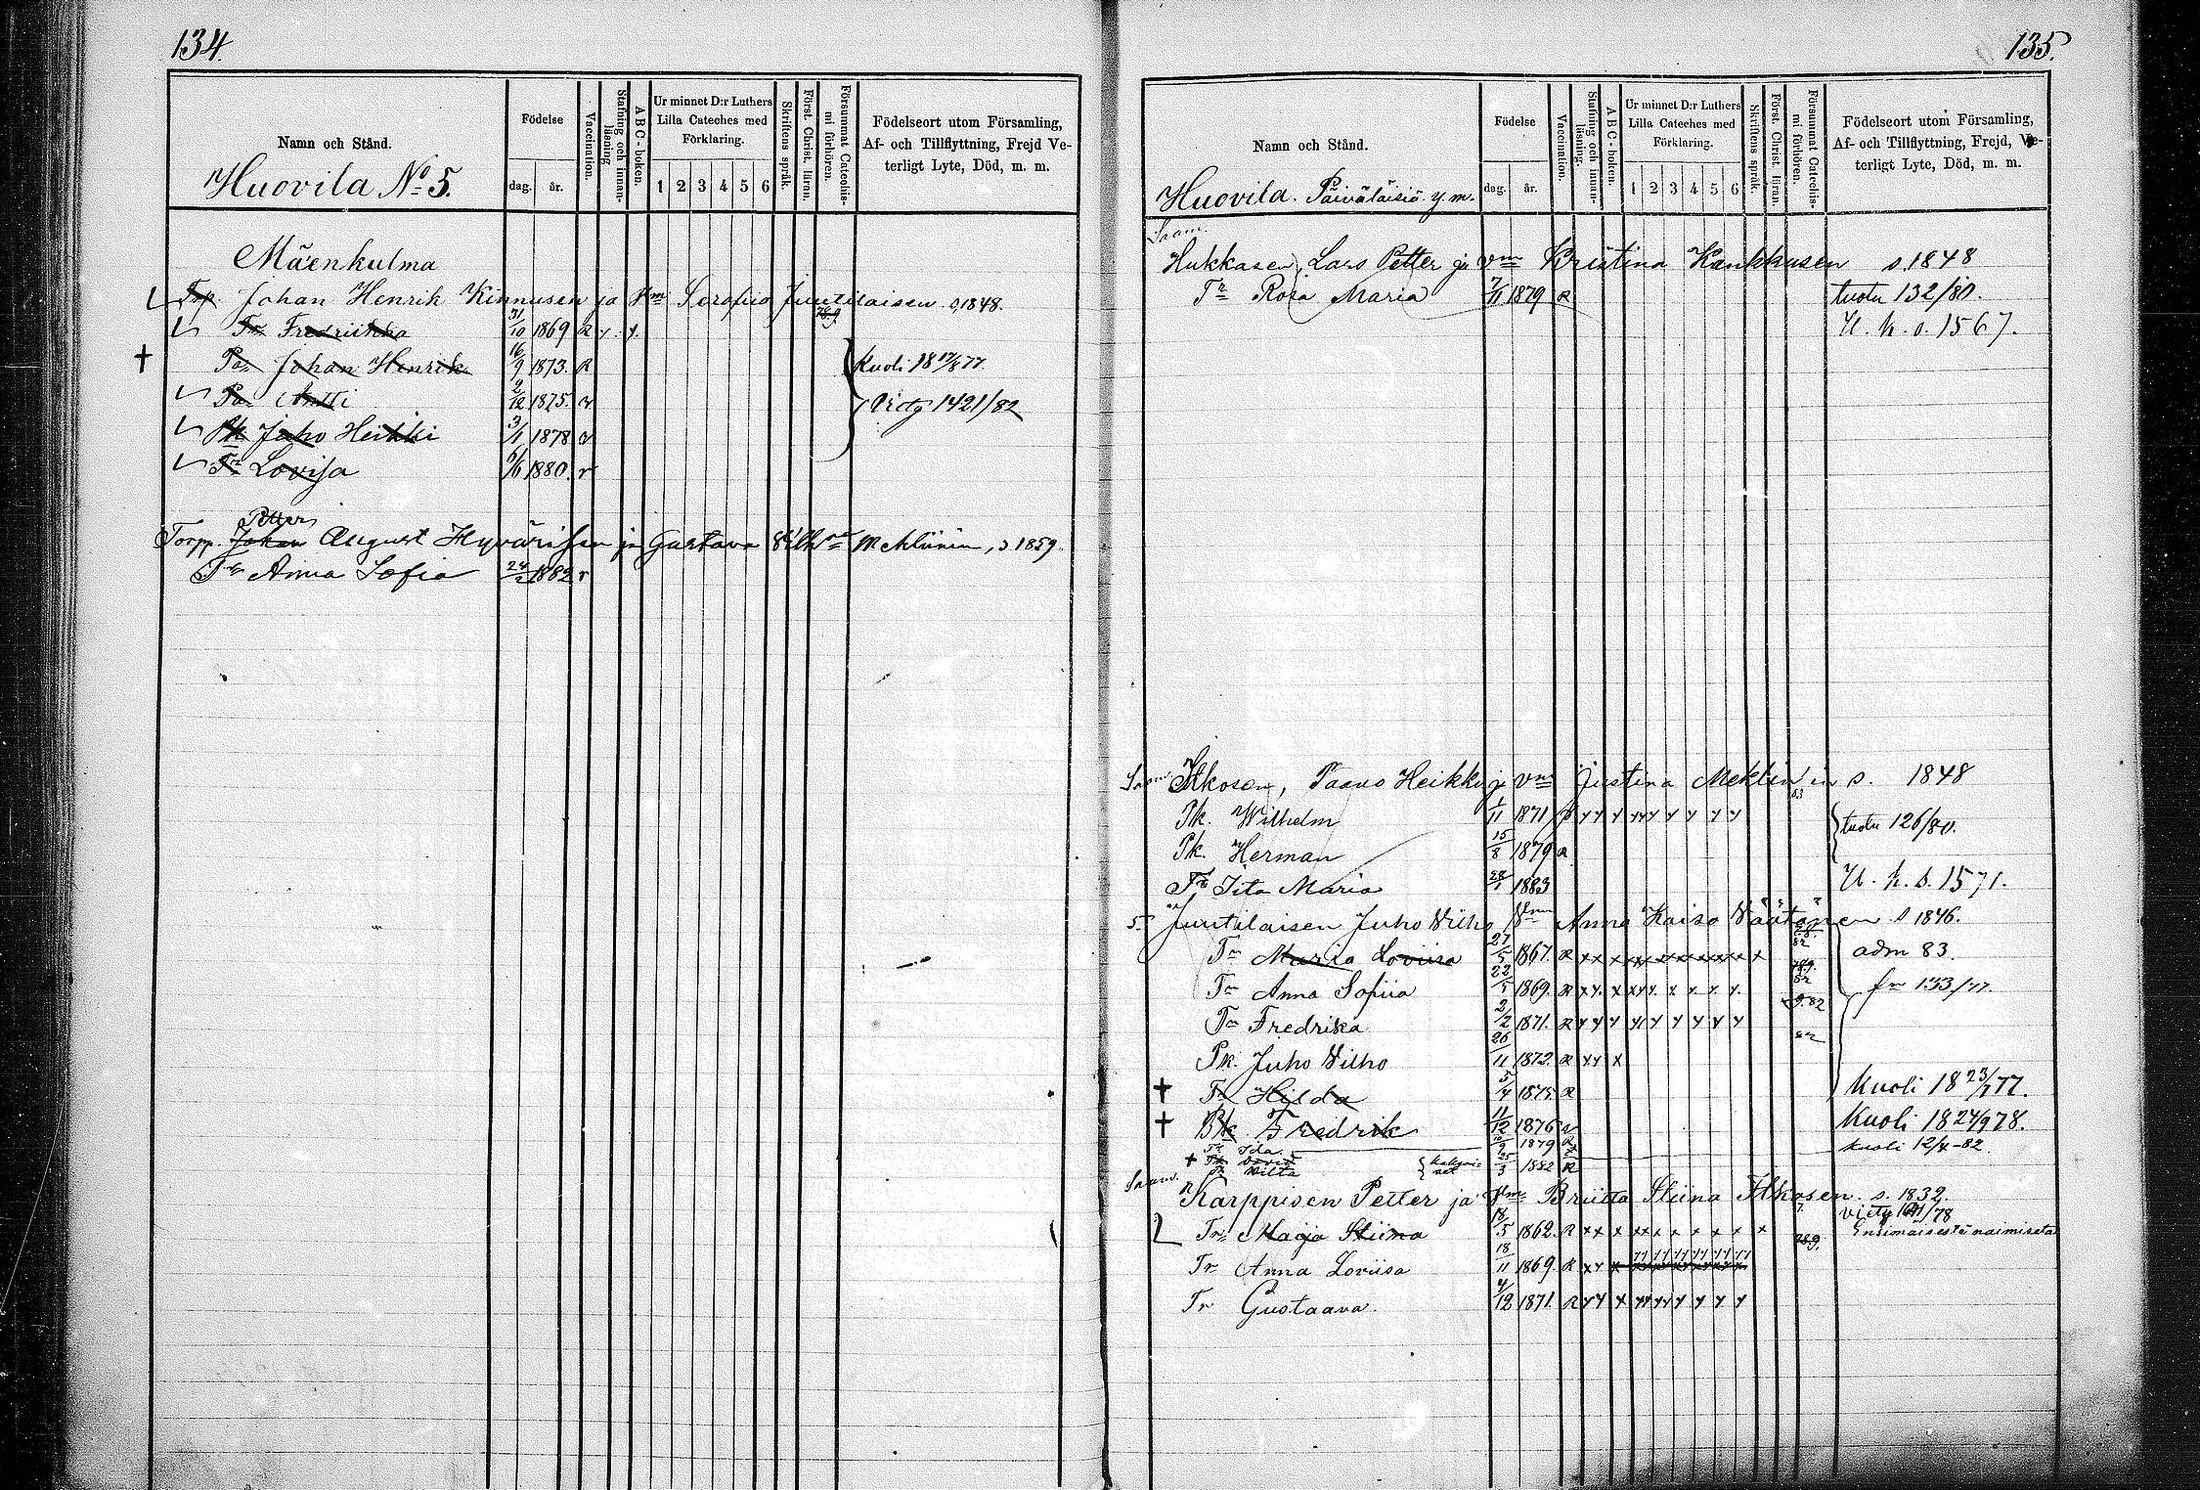 134.
Namn och Stånd.
Huovila No 5.
Födelse
dag. år.
Vaccination.
Stafning och innan-läsning.
ABC-boken.
Ur minnet D:r Luthers Lilla Cateches med Förklaring.
1 2 3 4 5 6
Skriftens språk.
Först. Christ. läran.
Försummat Catechis-mi förhören.
Födelseort utom Församling, Af- och Tillflyttning, Frejd Ve-terligt Lyte, Död, m. m.
Mäenkulma
Trp. Johan Henrik Kinnusen ja Vm Serafiia Juutilaisen s. 1848.
Tr Fredriikka 31/10 1869 R y. y.
† Po. Johan Henrik 16/9 1873. R Kuoli 18 17/8 77.
Po. Antti 2/12 1875. Viety 1421/82
Pk Juho Heikki 3/1 1878
Tr Lovisa 6/6 1880. r
Petter
Torpp. Johan August Hyvärisen ja Gustava Meklinin, s 1859.
Tr Anna Sofia 24/2 1882 r
135.
Namn och Stånd.
Huovila. Päiväläisiä y. m.
Födelse
dag. år.
Vaccination.
Stafning och innan-läsning.
ABC-boken.
Ur minnet D:r Luthers Lilla Cateches med Förklaring.
1 2 3 4 5 6
Skriftens språk.
Först. Christ. läran.
Försummat Catechis-mi förhören.
Födelseort utom Församling, Af- och Tillflyttning, Frejd, Ve-terligt Lyte, Död, m. m.
Saam.
Hukkasen, Lars Petter ja Vm Kristina Kankkusen s. 1848
Tr Rosa Maria 7/11 1879 R tuotu 132/80.
U. k. s. 1567.
Saam. Itkosen, Paavo Heikki ja Vm Justina Meklinin s. 1848
Pk. Wilhelm 1/11 1871 y y y y y y y y y tuotu 126/80.
Pk. Herman 15/8 1879 R
Tr Iita Maria 28/1 1883 U. k. s. 1571.
S. Juutilaisen Juho Vilho Vm Anna Kaisa Väätäinen s 1846.
Tr Maria Loviisa 27/5 1867. R x x x x x x x x x x adm 83.
Tr Anna Sofiia 22/5 1869. R x y. x x y y. x x. y. y. fr 133/77.
Tr Fredrika 2/2 1871. R y y y y y y y y y
Pk. Juho Vilho 26/11 1872. R x y x
† Tr Hilda 5/4 1875 R Kuoli 18 23/7 77.
† Pk Fredrik 11/12 1876 Kuoli 18 24/9 78.
Tr Ida 1879 R kuoli 12/4-82
† Pk David
Tr Vilta kaksoi-set 25/3 1882 R
Saam. Karppisen Petter ja Vm Briitta Stiina Itkosen. s. 1832.
Tr Maija Stiina 18/5 1862. R x x x x x x x x x x x viety /78
Ensimäisestä naimisesta
Tr Anna Loviisa 18/11 1869. R x y x
Tr Gustaava. 4/12 1871. R y y x y y y y y y y